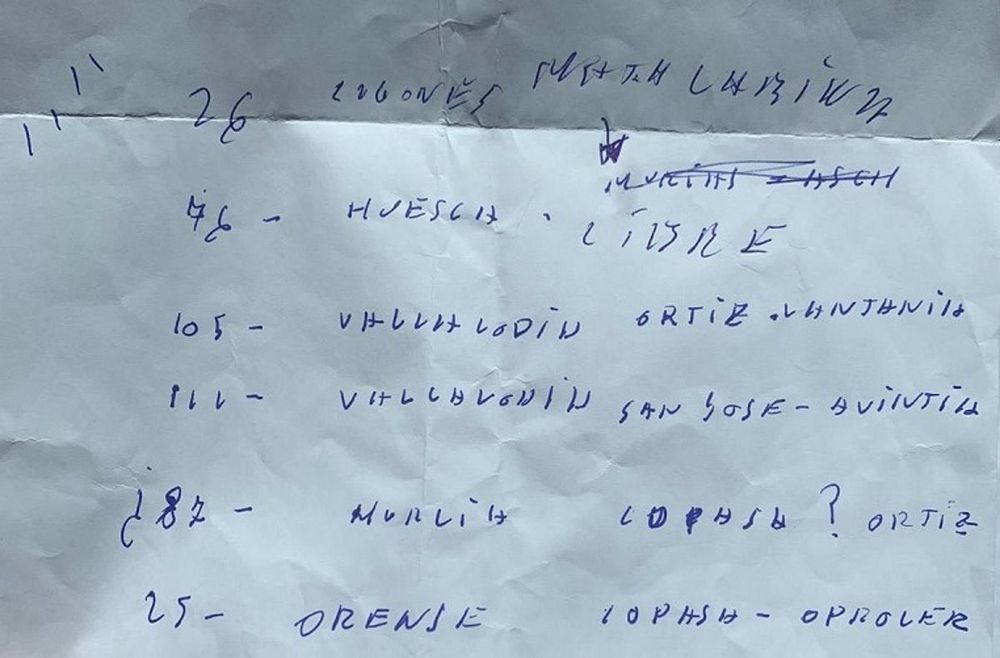 26 LUGONES MARTA LABIKA
MURIAS ASCH
76 - HUESCA . LIBRE
105 - VALLALODID ORTIZ . VANTANIA
111 - VALLALODID SAN JOSE - AVINTIA
¿ 87 - MURCIA COPASA ? ORTIZ
25 - ORENSE COPASA - OPROLER